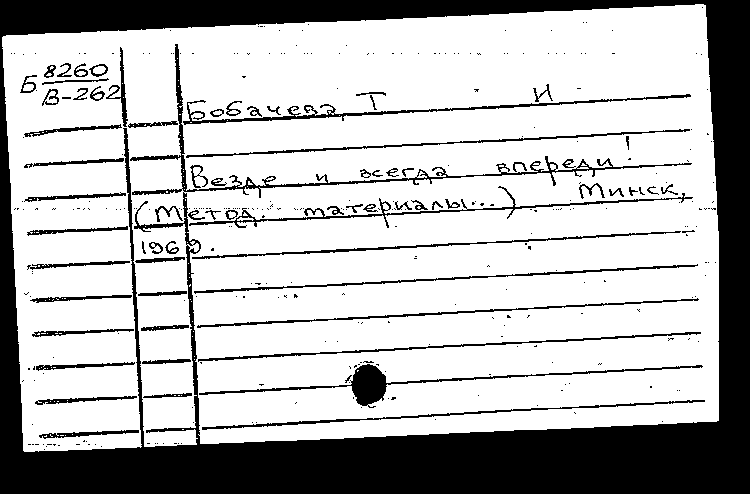 Б 8260
В-262
Бобачева Т И
Везде и всегда впереди!
(Метод. материалы...) Минск,
1969.